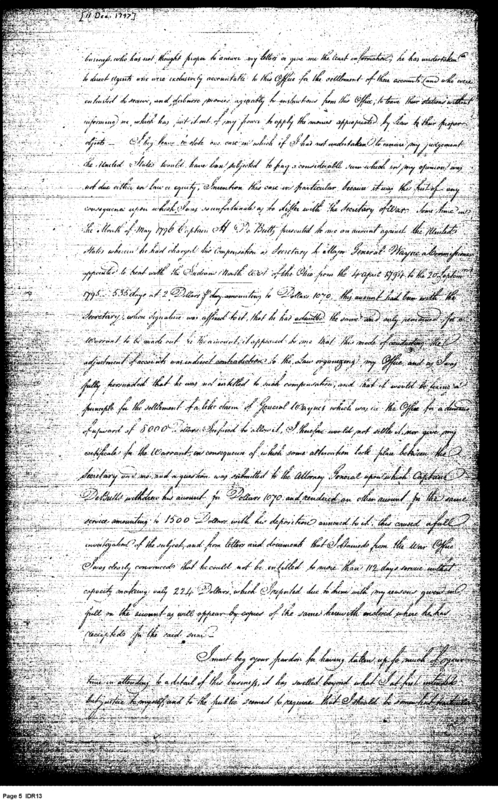 [11 Dec. 1797]
business, who has not thought proper to answer my letter or give me the least information, he has undertaken
to direct Agents who were exclusively accountable to this Office for the settlement of their accounts (and who were
intrusted to receive, and disburse monies agreeably to instructions from this Office, to leave their stations without
informing me, which has put it out of my power to apply the monies appropriated by Law to their proper
objects — I beg leave to state one case in which if I had not undertaken to exercise my judgement
the United States would have been subjected to pay a considerable sum which in my opinion was
not due either in law or equity. I mention this case in particular because it was the first of any
consequence upon which I was so unfortunate as to differ with the Secretary of War. Some time in
the Month of May 1796 Captain H. De Butts presented to me an account against the United
States wherein he had charged his compensation as Secretary to Major General Wayne a Commissioner
appointed to treat with the Indians North West of the Ohio from the 4 April 1794 to the 20 September
1795. 535 days at 2 Dollars p day amounting to Dollars 1070. this account had been with the
Secretary, whose signature was affixed to it, that he has admitted the same and only remained for a
Warrant to be made out to the account, it appeared to me that this mode of conducting the
adjustment of accounts was in direct contradiction to the Law organizing my Office, and as I was
fully persuaded that he was not intitled to such compensation, and that it would be fixing a
principle for the settlement of a like claim of General Waynes which was in the Office for a demand
of upward of 8000 dollars I refused to allow it, I therefore would not settle it, nor give my
certificate for the Warrant, in consequence of which some altercation took place between the
Secretary and me, and a question was submitted to the Attorney General upon which Captain
DeButts withdrew his account for Dollars 1070. and rendered an other account for the same
service amounting to 1500 Dollars with his deposition annexed to it. this caused a full
investigation of the subject, and from letters and documents that I obtained from the War Office
I was clearly convinced that he could not be intitled to more than 112 days service in that
capacity making only 224 Dollars, which I reported due to him with my reasons given in
full on the account as will appear by copies of the same herewith inclosed where he has
receipted for the said sum —
I must beg your pardon for having taken up so much of your
time in attending to a detail of this business, it has swelled beyond what I at first intended
but justice to myself, and to the public seemed to require that I should be somewhat particular
Page 5 IDR13